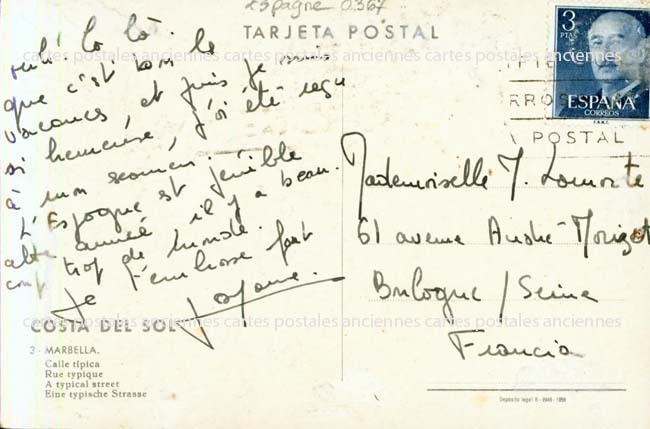 Espagne 0367
TARJETA POSTAL
3
PTAS
ESPAÑA
CORREOS
F.N.M.T.
RROS
POSTAL
cartes postales anciennes cartes postales anciennes cartes postales anciennes
que c'est bon le
vacances et puis je suis
si heureuse, j'ai été reçu
à mon examen.
L'Espagne est pénible
cette année il y a beau
trop de monde.
Je t'embrasse fort
Mademoiselle J. Lamorte
61 avenue André Morizet
Boulogne / Seine
Francia
COSTA DEL SOL
cartes postales anciennes cartes postales anciennes cartes postales anciennes
3 - MARBELLA.
Calle típica
Rue typique
A typical street
Eine typische Strasse